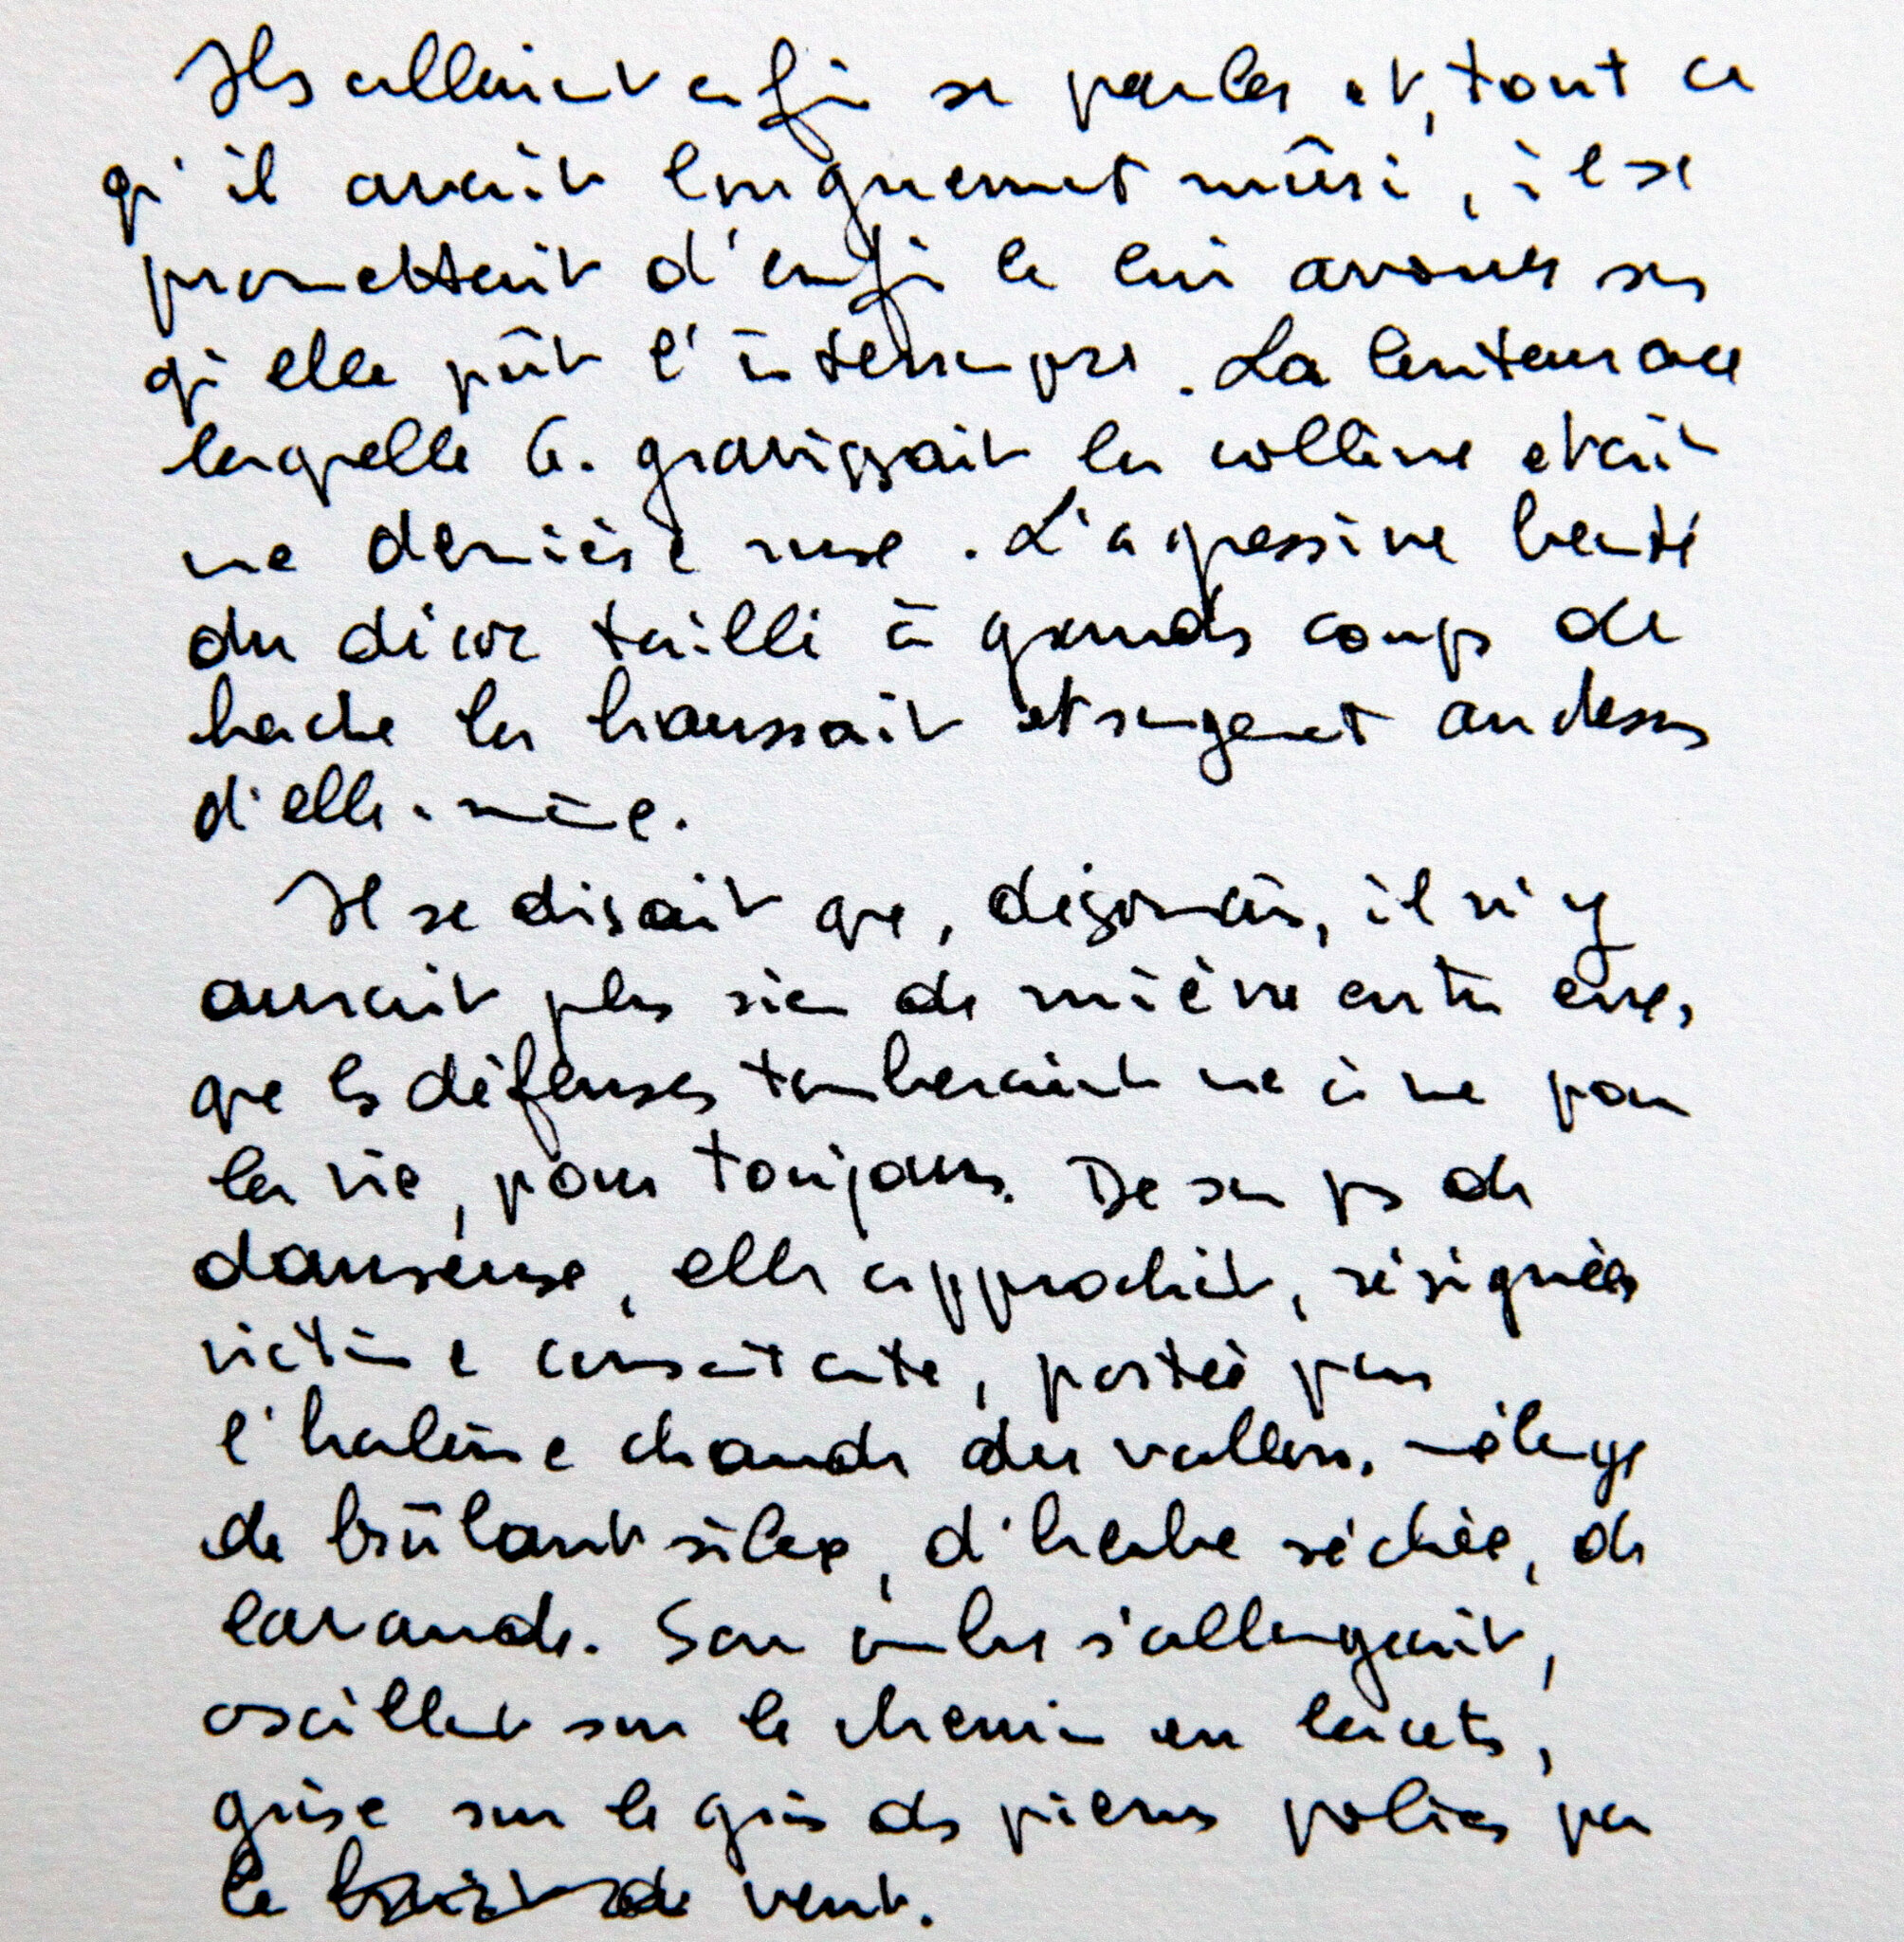 Ils allaient enfin se parler et, tout ce
qu'il avait longuement mûri, il se
promettait d'enfin le lui avouer sans
qu'elle pût l'interrompre. La lenteur avec
laquelle G. gravissait la colline était
une dernière ruse. L'agressive beauté
du décor taillé à grands coups de
hache la haussait étrangement au dessus
d'elle-même.
Il se disait que, désormais, il n'y
aurait plus rien de mièvre entre eux,
que les défenses tomberaient une à une pour
la vie, pour toujours. De son pas de
danseuse, elle approchait, résignée,
victime consentante, portée par
l'haleine chaude du vallon, mélange
de brûlant silex, d'herbe séchée, de
lavande. Son ombre s'allongeait,
oscillant sur le chemin en lacets,
grise sur le gris des pierres polies par
le vent.